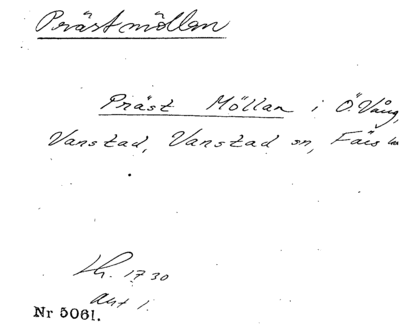 Prästmöllan
Präst Möllan i Ö. Vång,
Vanstad, Vanstad sn, Färs
Lh. 1730
akt 1.
Nr 5061.